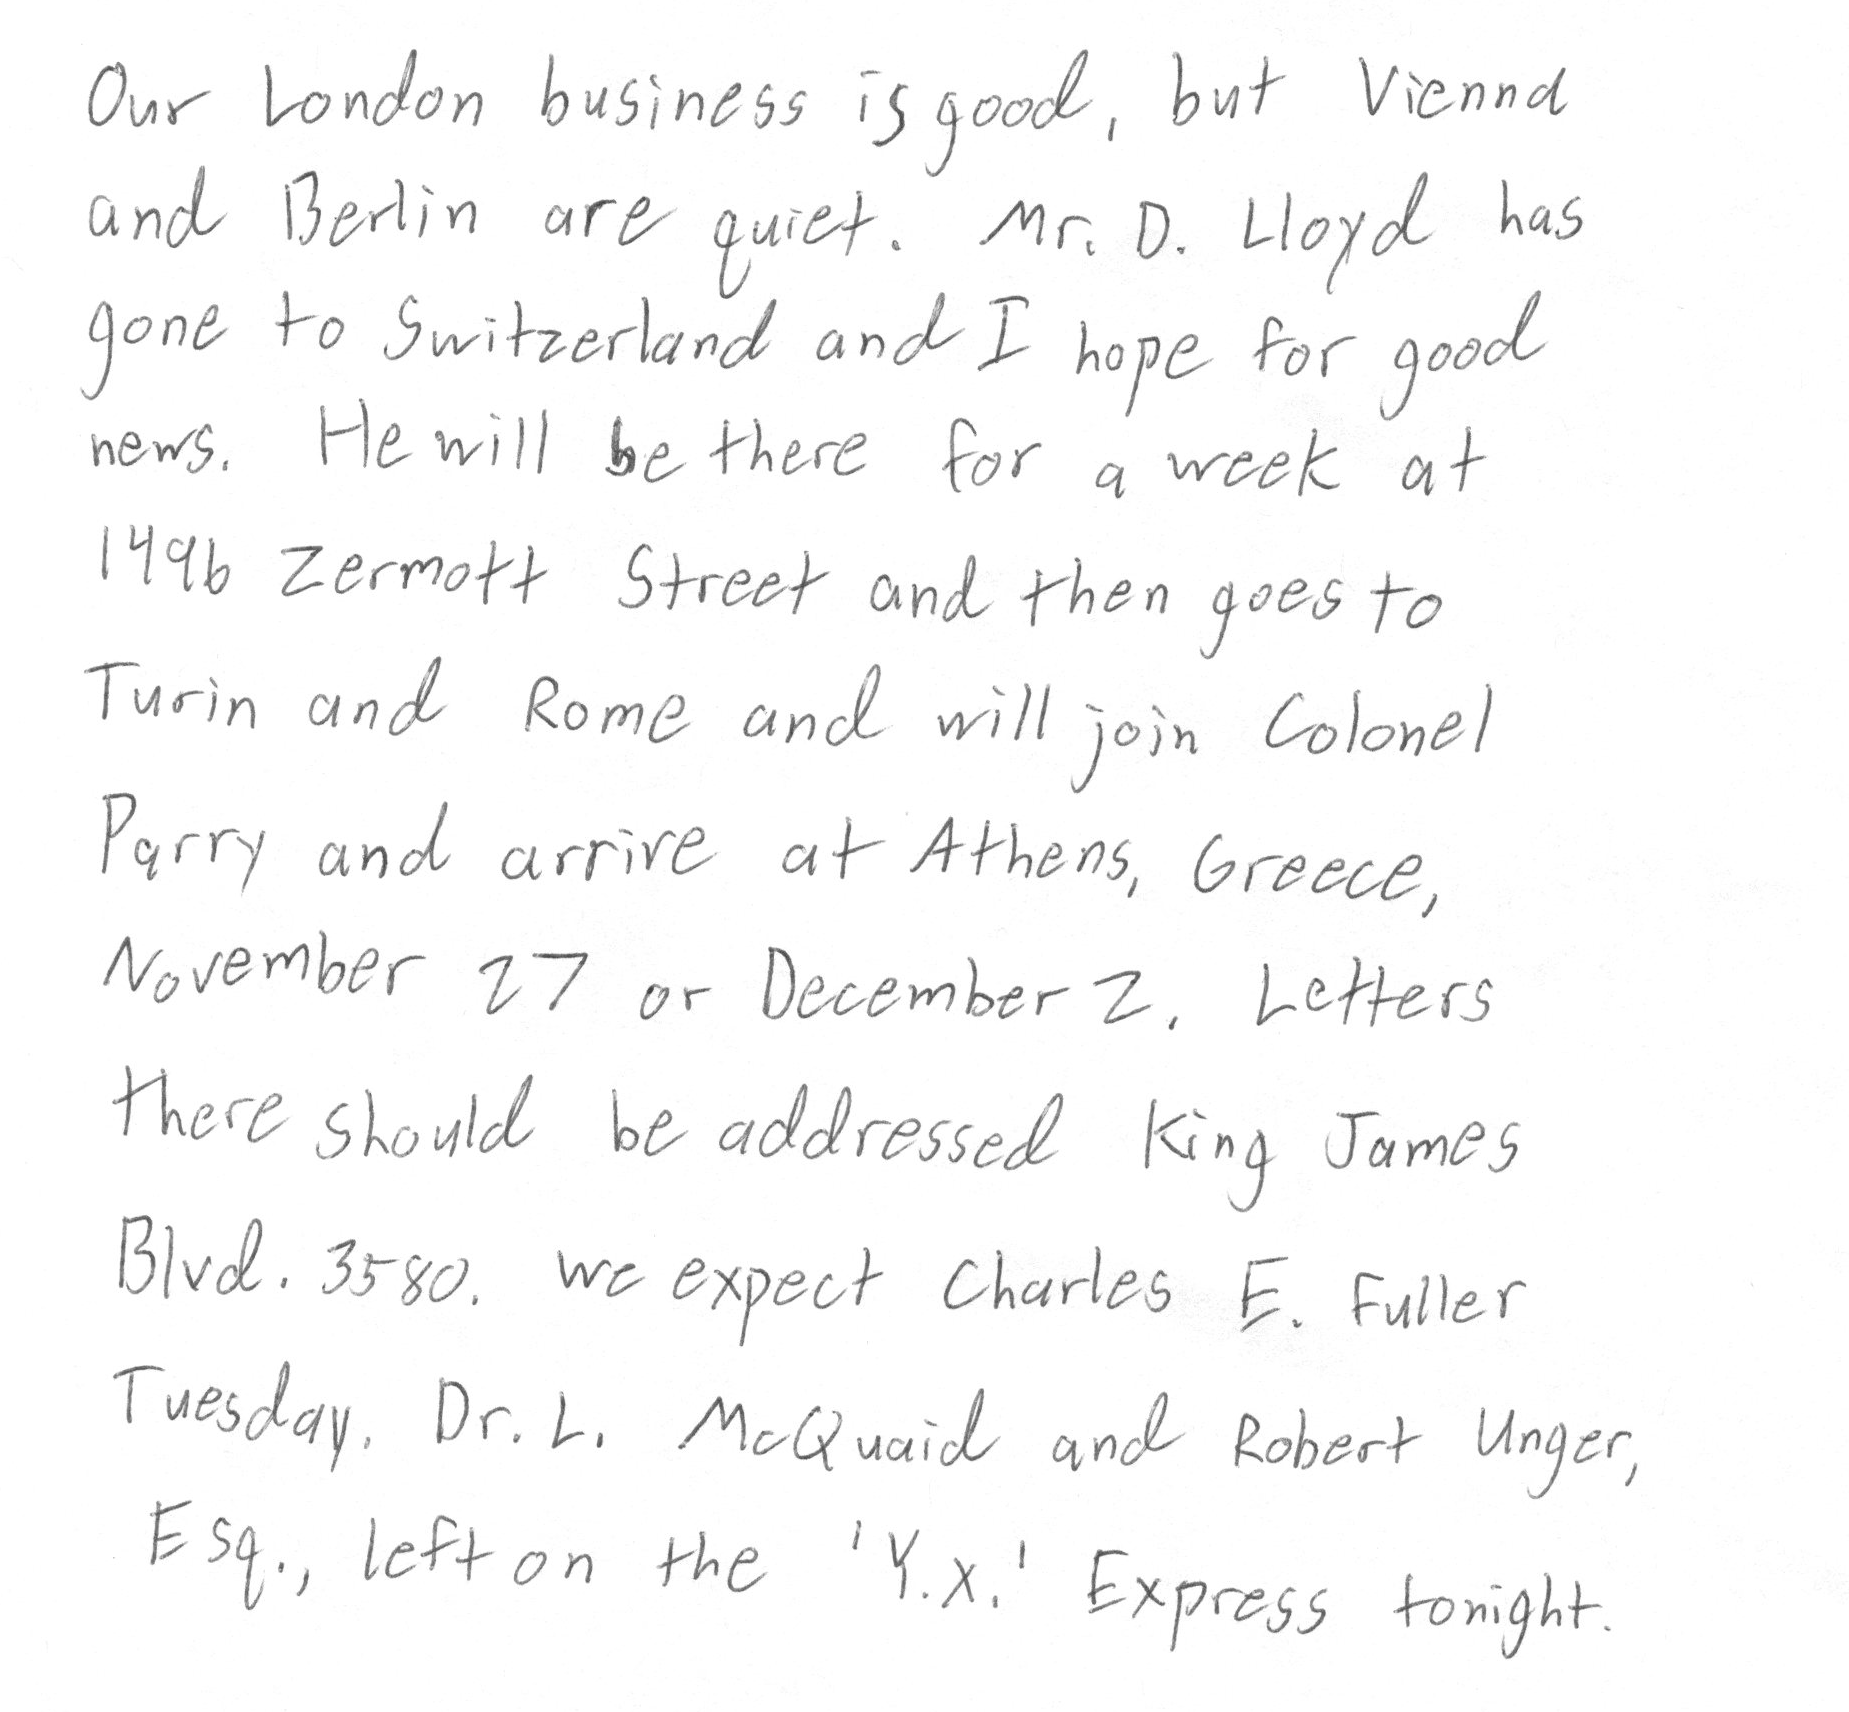 Our London business is good, but Vienna
and Berlin are quiet. Mr. D. Lloyd has
gone to Switzerland and I hope for good
news. He will be there for a week at
1496 Zermott Street and then goes to
Turin and Rome and will join Colonel
Parry and arrive at Athens, Greece,
November 27 or December 2. Letters
there should be addressed King James
Blvd. 3580. We expect Charles E. Fuller
Tuesday. Dr. L. McQuaid and Robert Unger,
Esq., left on the 'Y.X.' Express tonight.